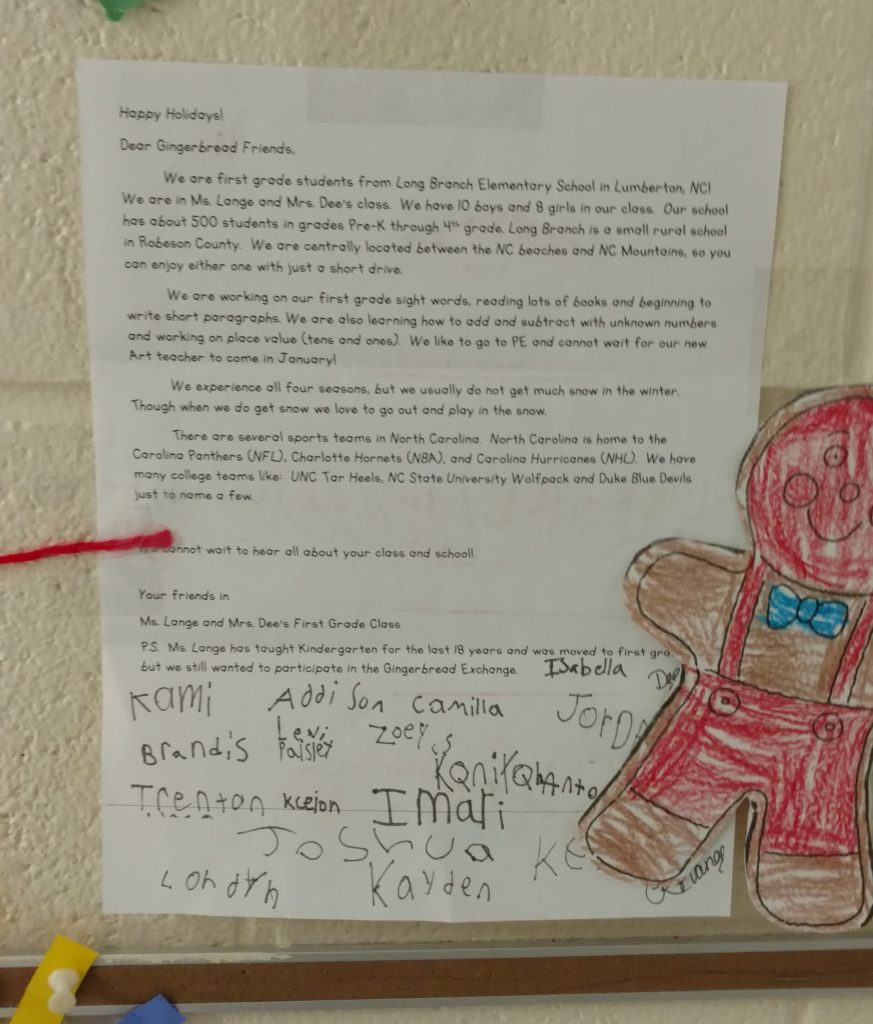 Happy Holidays!
Dear Gingerbread Friends,
We are first grade students from Long Branch Elementary School in Lumberton, NC!
We are in Ms. Lange and Mrs. Dee's class. We have 10 boys and 8 girls in our class. Our school
has about 500 students in grades Pre-K through 4th grade. Long Branch is a small rural school
in Robeson County. We are centrally located between the NC beaches and NC Mountains, so you
can enjoy either one with just a short drive.
We are working on our first grade sight words, reading lots of books and beginning to
write short paragraphs. We are also learning how to add and subtract with unknown numbers
and working on place value (tens and ones). We like to go to PE and cannot wait for our new
Art teacher to come in January!
We experience all four seasons, but we usually do not get much snow in the winter.
Though when we do get snow we love to go out and play in the snow.
There are several sports teams in North Carolina. North Carolina is home to the
Carolina Panthers (NFL), Charlotte Hornets (NBA), and Carolina Hurricanes (NHL). We have
many college teams like: UNC Tar Heels, NC State University Wolfpack and Duke Blue Devils
just to name a few.
cannot wait to hear all about your class and school!
Your friends in
Ms. Lange and Mrs. Dee's First Grade Class
P.S. Ms. Lange has taught Kindergarten for the last 18 years and was moved to first gra
but we still wanted to participate in the Gingerbread Exchange. Isabella
Kami Addison Camilla
Brandis Levi Zoey
Paisley
Trenton Kceion Imari
Joshua
Londyn Kayden